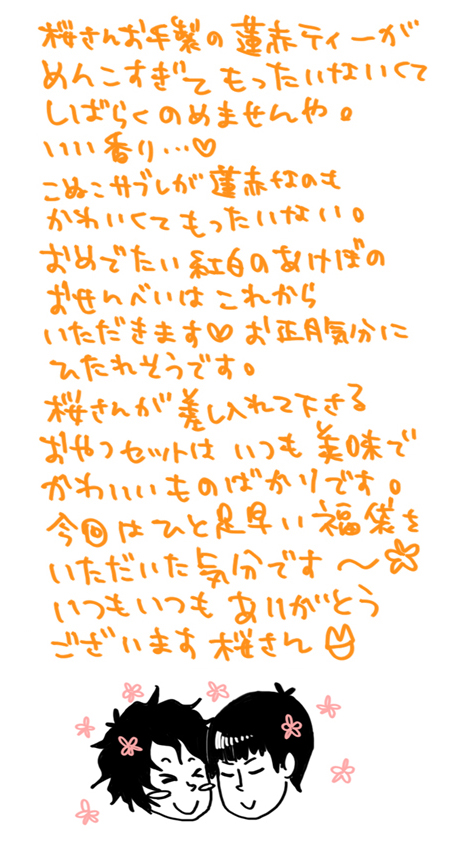 桜さんお手製の蓮赤ティーが
めんこすぎてもったいないくて
しばらくのめませんや。
いい香り…♡
こぬこサブレが蓮赤なのも
かわいくてもったいない。
おめでたい紅白のあけぼの
おせんべいはこれから
いただきます♡お正月気分に
ひたれそうです。
桜さんが差し入れて下さる
おやつセットはいつも美味で
かわいいものばかりです。
今回はひと足早い福袋を
いただいた気分です〜
いつもいつもありがとう
ございます桜さん